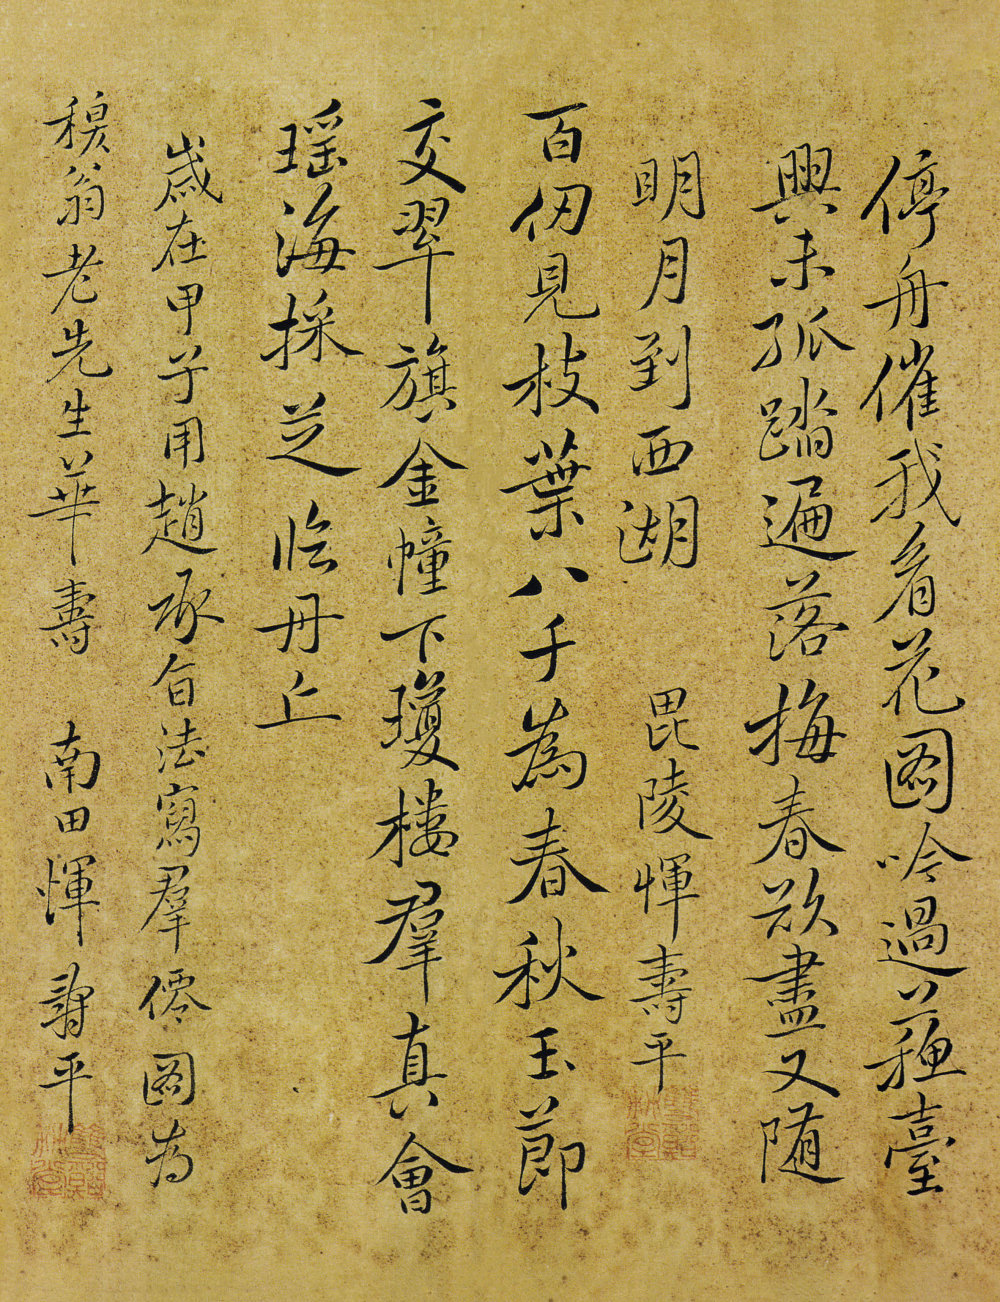 停舟催我看花圖吟過蘓臺
興未孤踏遍落梅春欲盡又隨
明月到西湖 毘陵惲壽平
百仞見枝葉八千為春秋玉節
交翠旗金幢下瓊樓羣真會
瑶海採芝臨丹丘
歲在甲子用趙承旨法寫羣僊圖為
翁老先生華壽 南田惲壽平